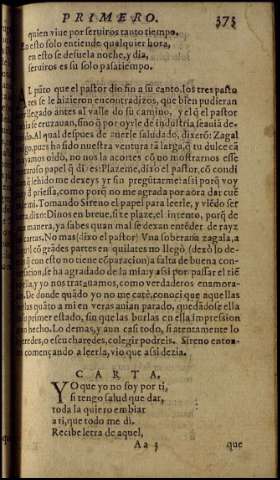 PRIMERO. 373
quien viue por seruiros tanto tiempo.
En esto solo entiende qualquier hora,
en esto se desuela noche, y dia,
seruiros es su solo passatiempo.
AL pũto que el pastor dio fin a su canto, los tres pasto
res se le hizieron encontradizos, que bien pudieran
llegado antes al valle do su camino, y el q̃l pastor
se cruzauan, sino q̃ por oyrle de industria,
do. Al qual despues de auerle saludado, dixerõ: Zagal
go, pues ha sido nuestra ventura tã larga, q̃ tu dulce cã
ayamos oido, no nos la acortes cõ no mostrarnos esse
papel q̃ di es: Plazeme, dixo el pastor, cõ condi
q̃ leido me dexeys yr sin preguntarme: assi porq̃ voy
priessa, como porq̃ no me agrada por aora dar cuẽ
mi. Tomando Sireno el papel para leerle, y viẽdo ser
dixo: Dinos en breue, si te plaze, el intento, porq̃ de
manera, ya sabes quan mal se dexan entẽder de rayz
cartas. No mas (dixo el pastor) Vna soberana zagala, a
cõ grãdes partes en quilates no llegò (dexo lo de
con esto no tiene cõparacion) a falta de buena con
se ha agradado de la mia: y assi por passar el tiẽ
ella, y yo nos tratauamos, como verdaderos enamora-
De donde quãdo yo no me catè, conoci que aquellas
quãto a mi en veras auian parado, quedãdose ella
primer estado, sin que las burlas en ella, impression
hecho. Lo demas, y aun casi todo, si atentamente lo
o escucharedes, colegir podreis. Sireno enton-
començando a leerla, vio que assi dezia.
CARTA.
YO que yo no soy por ti,
si tengo salud que dar,
toda la quiero embiar
a ti, que todo me di.
Recibe letra de aquel,
Aa 3 que